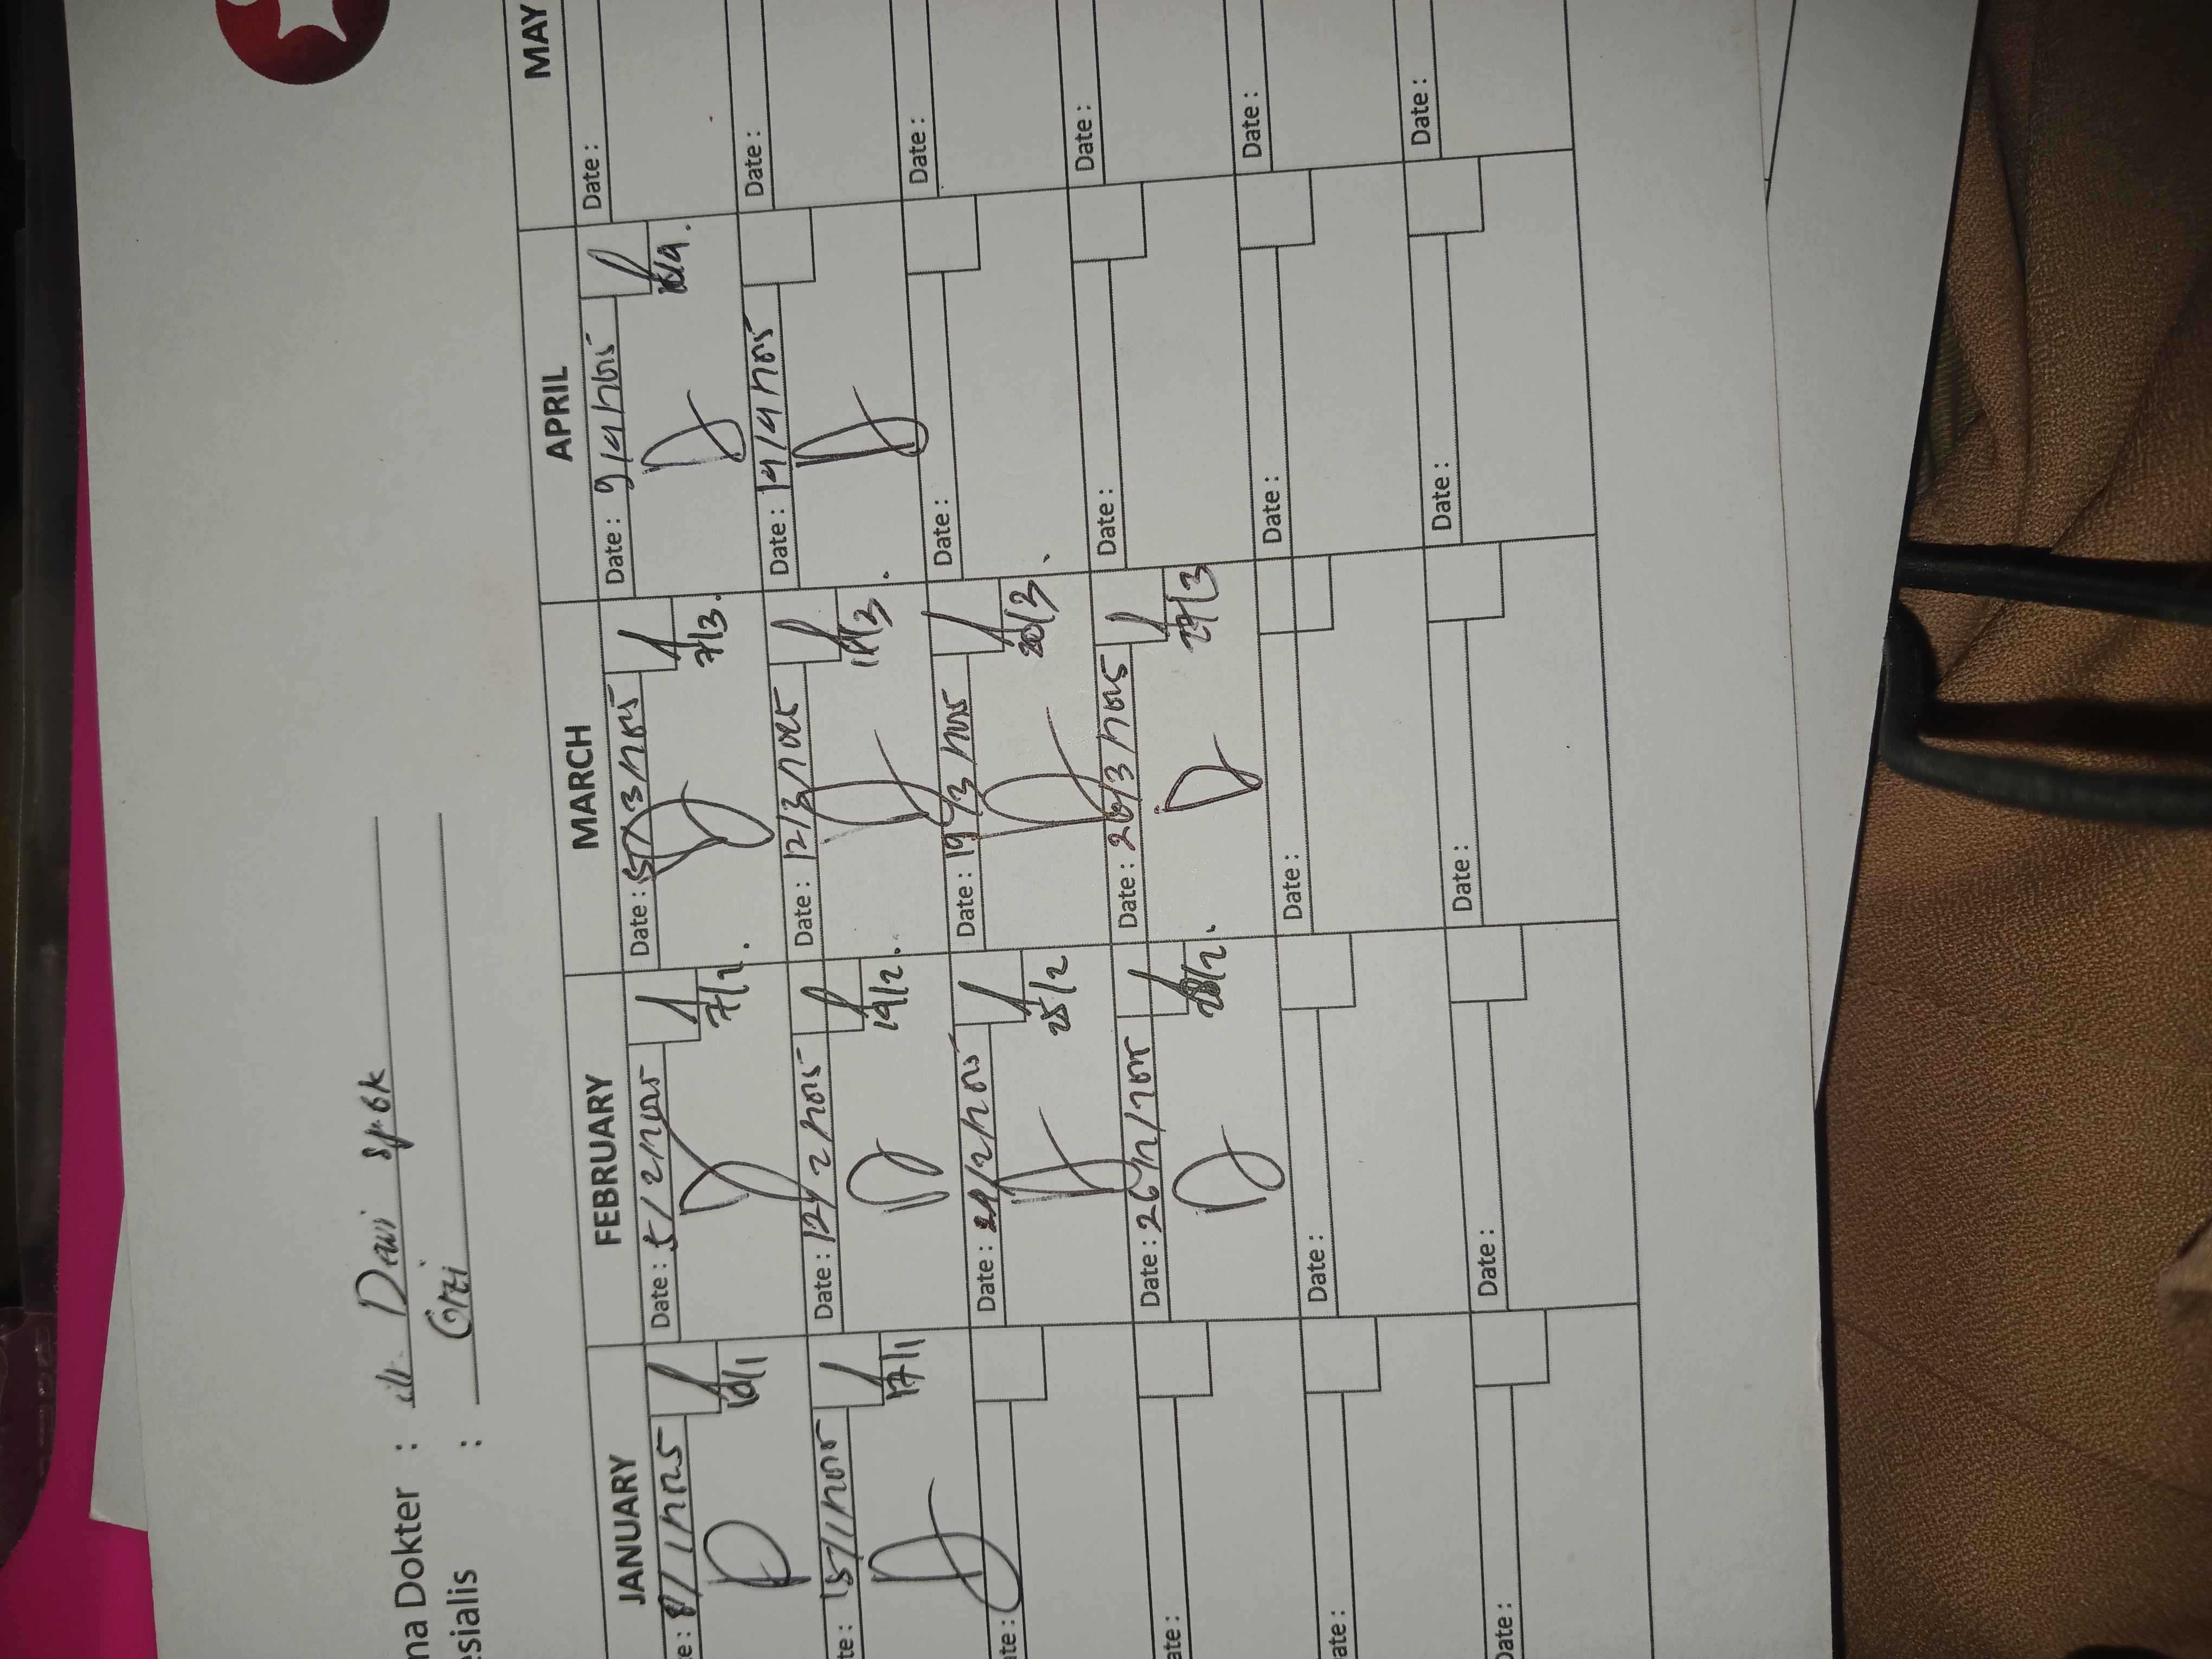 na Dokter : dr. Dewi sp.GK
esialis : Gizi
JANUARY FEBRUARY MARCH APRIL MAY
te: 8/1/2025 Date: 5/2/2025 Date: 5/3/2025 Date: 9/4/2025 Date:
10/1 7/2. 7/3.
te: 15/1/2025 Date: 12/2/2025 Date: 12/3/2025 Date: 14/4/2025 Date:
17/1 14/2. 18/3.
ate: Date: 24/2/2025 Date: 19/3/2025 Date: Date:
25/2 20/3.
ate: Date: 26/2/2025 Date: 26/3/2025 Date: Date:
28/2. 27/3
ate: Date: Date: Date: Date:
Date: Date: Date: Date: Date: